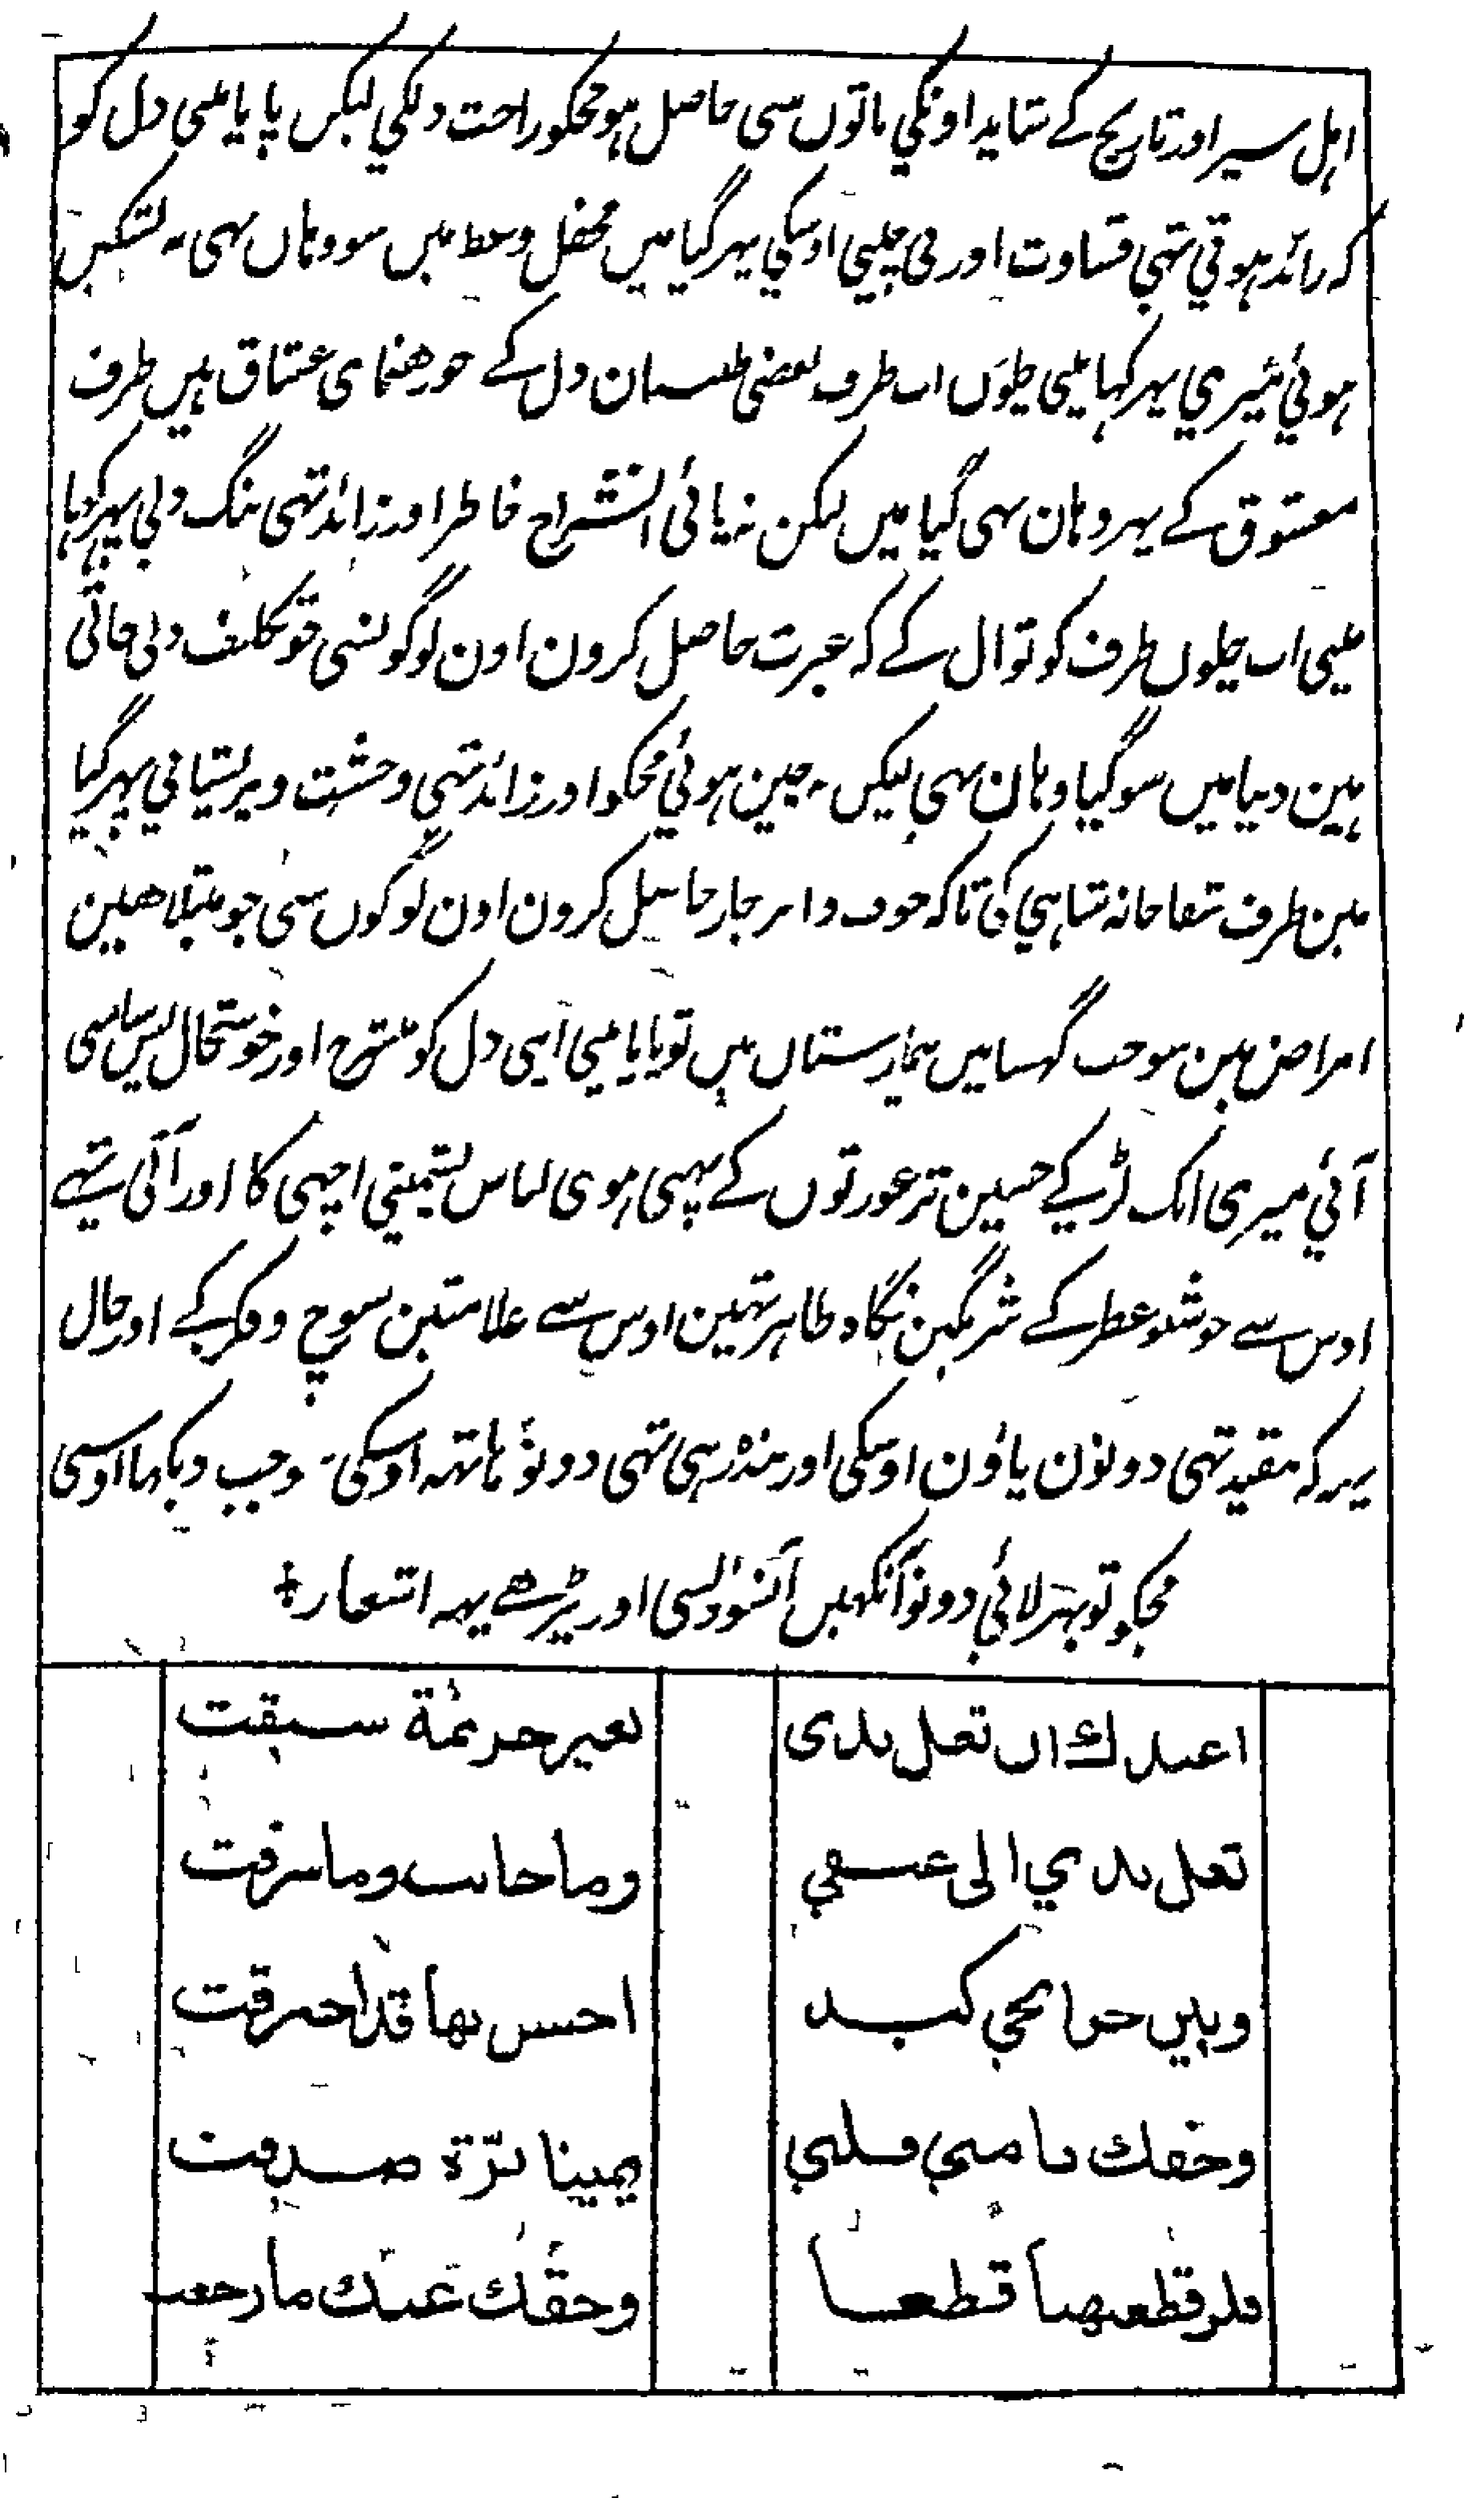 اہل سیر اور تاریخ کے شاید اونکی باتوں سی حاصل ہو مجکو راحت دلکی لیکن پایا میںی دل کو
کہ زائد ہوتی تہی قساوت اور بی چینی اوسکی پہر گیا میں محفل وعظ میں سو وہاں بہی نہ تسکین
ہوئی میری پہر کہا میںی چلوں اب طرف بعضی طبیبان دل کے جو رہنمای عشاق ہیں طرف
معشوق کے پہر وہان بہی گیا میں لیکن نہ پائی انشراح خاطر اور زائد تہی تنگ دلی پہر کہا
میںی اب چلوں طرف کوتوال کے کہ عبرت حاصل کرون اون لوگو نسی جو تکلیف دی جاتی
ہین دنیا میں سو گیا وہان بہی لیکن نہ چین ہوئی مجکو اور زائد تہی وحشت و پریشانی پہر گیا
مین طرف شفاخانہ شاہی کی تاکہ خوف و انزجار حاصل کرون اون لوگوں سی جو مبتلا ھین
امراض مین سو جب گہسا میں بیمارستان میں تو پایا میںی اپنی دل کو منشرح اور خوشحال پس سامنی
آئی میری ایک لڑکی حسین تر عورتوں کے پہنی ہوی لباس پشمینی اچہی کا اور آتی تہی
اوس سے خوشبو عطر کے شرمگین نگاہ ظاہر تہین اوس سے علامتین سوچ و فکر کے اور حال
یہ کہ مقید تہی دونون پاؤن اوسکی اور بندہ رہی تہی دونو ہاتہہ اوسکی ۔ وجب دیکہا اوسی
مجکو تو بہر لائی دونو آنکھیں آنسوؤں سی اور پڑھے یہہ اشعار ؞
اعیدك ان تغل یدی
بغیر جریمة سبقت
تغل یدي الی عنقي
وما خانت وما سرقت
وبین جوانحي كبد
احس بها قد احترقت
وحقك یا منی قلبي
یمینا برّة صدقت
فلو قطعتها قطعا
وحقك عنك ما رجعت